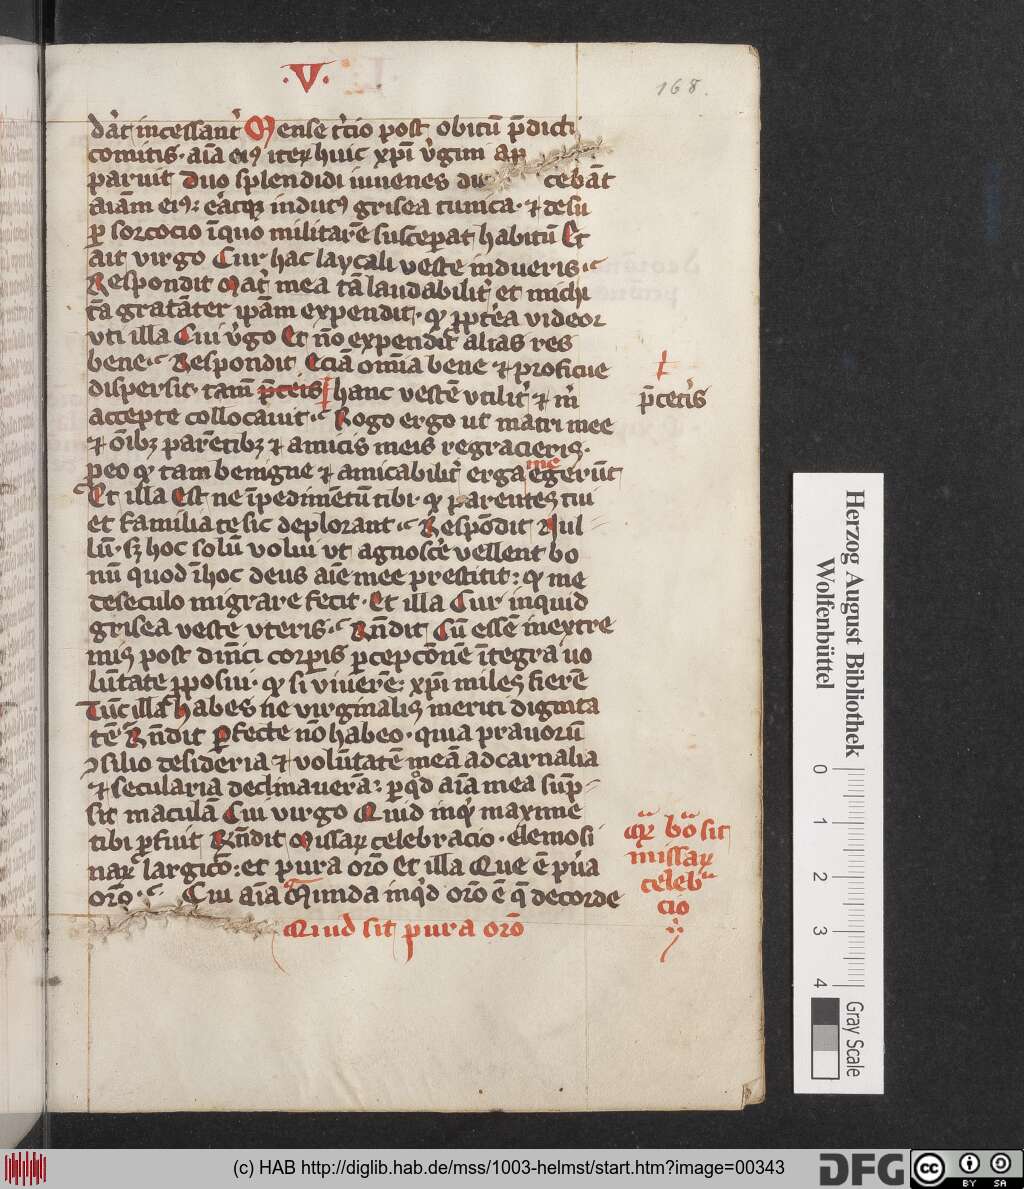 ·V·
168.
dāt incessant͛ Mense t͛cio post obitū p̄dicti
comitis· aīa eiꝰ iteꝝ huic xpī v͛gini ap
paruit Duo splendidi iuuenes du cebāt
aiām eiꝰ: eāqꝫ indutꝰ grisea tunica· ⁊ desu
ꝑ sorcocio īquo militarē susceperat habitū Et
ait virgo Cur hac laycali veste indueris·
Respondit Mat͛ mea tā laudabilit͛ et michi
tā gratāter ipām expendit· ꝙ ꝓpt͛ea videor
vti illa Cui v͛go Et nō expendit alias res
bene· Respondit Eciā om̄ia bene ⁊ proficue
dispersit· tam hanc vestē vtilit͛ ⁊ m͛
p̄cet͛is
accepte collocauit· Rogo ergo ut matri mee
⁊ oībꝫ parētibꝫ ⁊ amicis meis regracieris·
ꝑeo ꝙ tam benigne ⁊ amicabilit͛ erga me egerūt
Et illa Est ne īpedimētū tibi· ꝙ parentes tui
et familia te sic deplorant· Respōdit Nul
lū· sꝫ hoc solū volui vt agnosc͛e vellent bo
nū quod ī hoc deus aīe mee prestitit: ꝙ me
de seculo migrare fecit· Et illa Cur inquid
grisea vestē vteris· Rn̄dit Cū essē in extre
mis post dm̄ici corpis ꝑcepcōnē ītegra uo
lūtate ꝓposui· ꝙ si viuerē: xpī miles fierē
Tūc illa habes ne virginalis meriti dignita
tē Rn̄dit ꝑfecte nō habeo· quia prauorū
ꝯsilio desideria ⁊ volūtatē meā ad carnalia
⁊ secularia declinauerā: ꝑqd aīa mea suꝑ
sit maculā Cui virgo Quid inq͛ maxime
tibi ꝓfuit Rn̄dit Missaꝝ celebracio· elemosi
naꝝ largic̄o: et pura orō Et illa Que ē pu͛a
orō· Cui aīa Munda inqd orō ē q̄ de corde
Quid sit pura orō
q͛ꝝ bō sit
missaꝝ
celeb͛
cio
Herzog August Bibliothek
Wolfenbüttel
0 1 2 3 4
Gray Scale
(c) HAB http://diglib.hab.de/mss/1003-helmst/start.htm?image=00343
DFG
cc BY SA